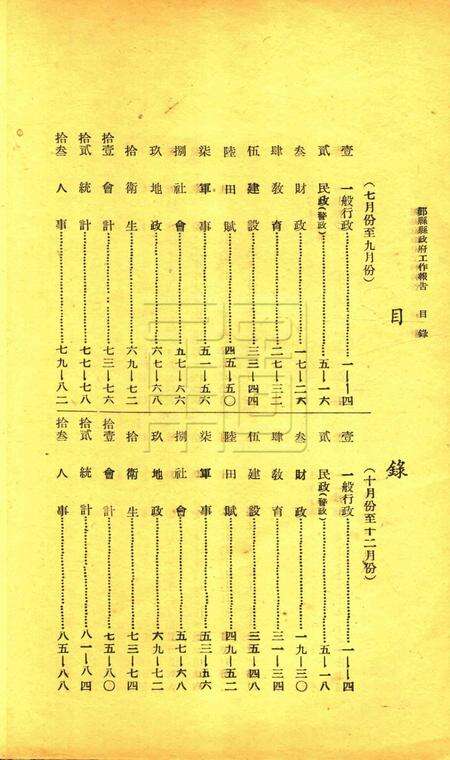 鄷縣縣政府工作報告 目錄
目錄
（七月份至九月份）
壹 一般行政 一—四
貳 民政（警政） 五—一六
叁 財政 一七—二六
肆 教育 二七—三二
伍 建設 三三—四四
陸 田賦 四五—五〇
柒 軍事 五一—五六
捌 社會 五七—六六
玖 地政 六七—六八
拾 衛生 六九—七二
拾壹 會計 七三—七六
拾貳 統計 七七—七八
拾叁 人事 七九—八二
（十月份至十二月份）
壹 一般行政 一—四
貳 民政（警政） 五—一八
叁 財政 一九—三〇
肆 教育 三一—三四
伍 建設 三五—四八
陸 田賦 四九—五二
柒 軍事 五三—五六
捌 社會 五七—六八
玖 地政 六九—七二
拾 衛生 七三—七四
拾壹 會計 七五—八〇
拾貳 統計 八一—八四
拾叁 人事 八五—八八